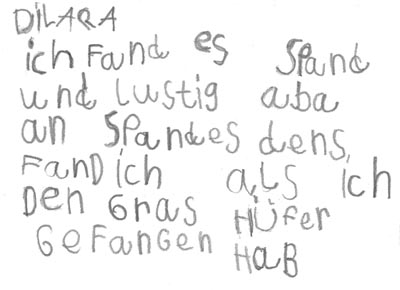 DiLARA
ich Fand es Spand
und Lustig aba
an Spandes dens
FanD ich als ich
Den Gras HÜfer
GeFanGen HaB